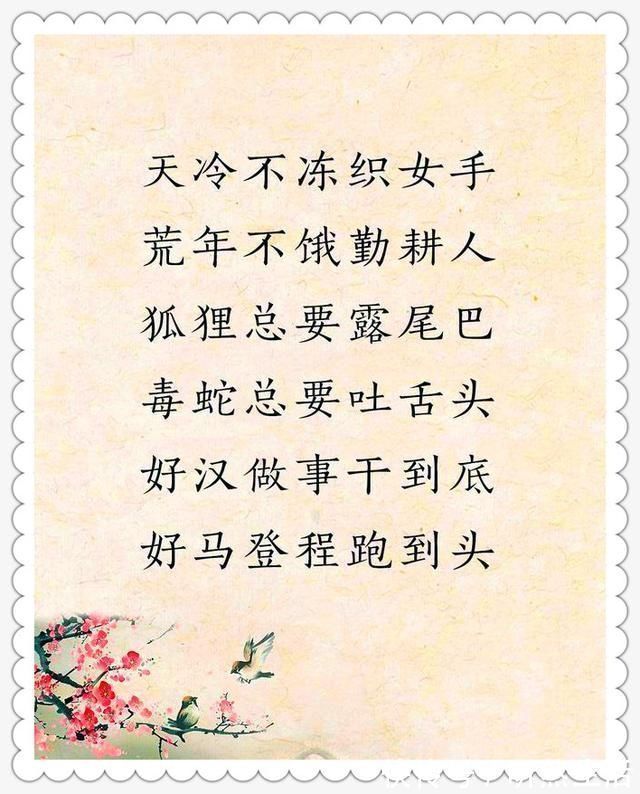 天冷不冻织女手
荒年不饿勤耕人
狐狸总要露尾巴
毒蛇总要吐舌头
好汉做事干到底
好马登程跑到头